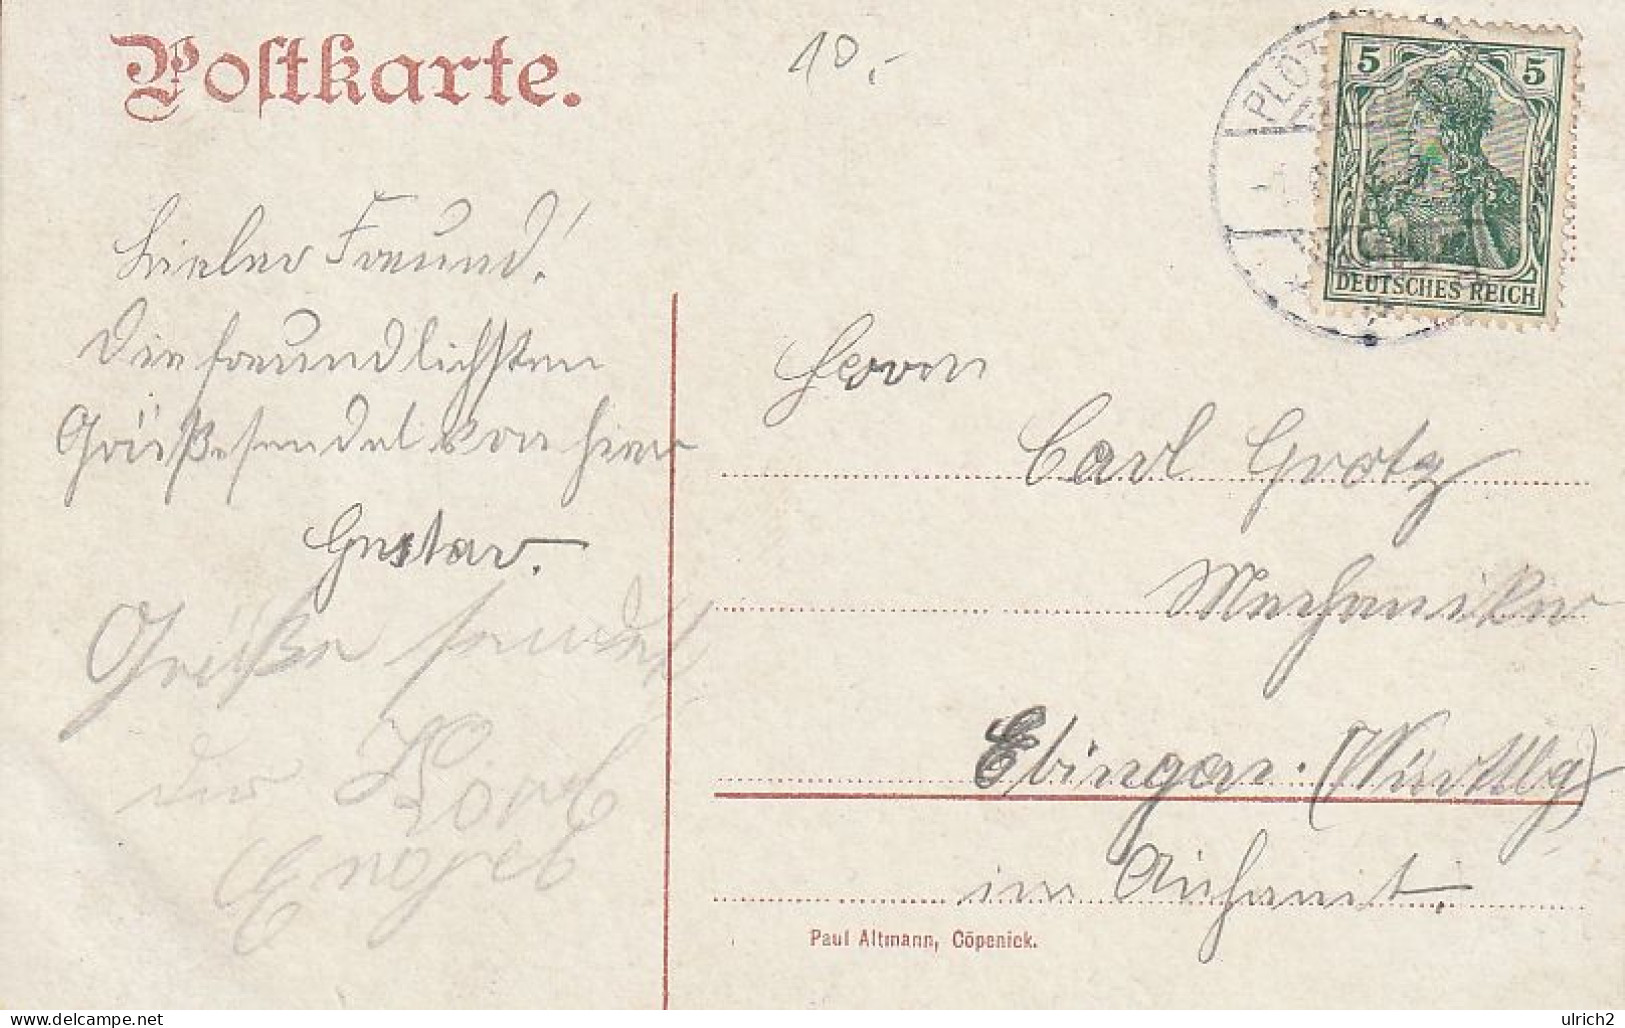 Postkarte.
10.-
PLÖT
5 5
DEUTSCHES REICH
Lieber Freund!
Die freundlichsten
Grüße sendet von hier
Gustav.
Grüße sendet
der
Engel
Herrn
Carl Grotz
Mechaniker
Ebingen. (Württbg)
im
Paul Altmann, Cöpenick.
www.delcampe.net
ulrich2